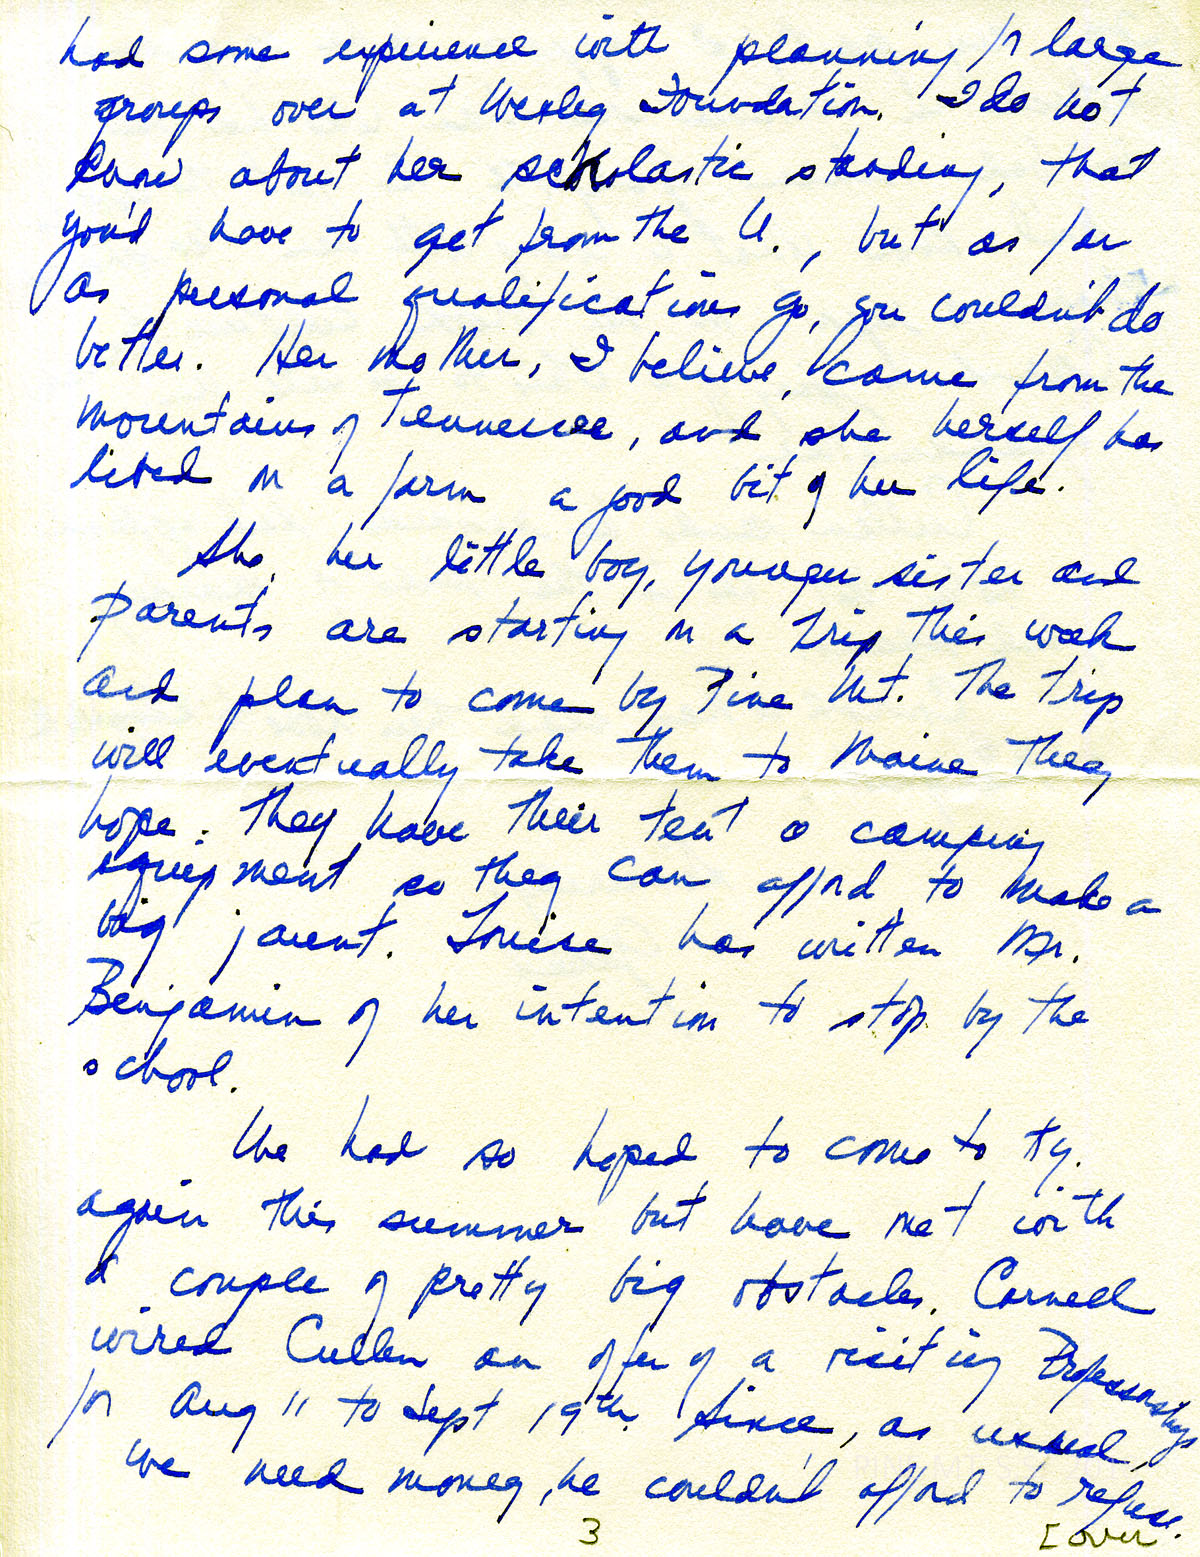 had some experience with planning for large
groups over at Wesley Foundation. I do not
know about her scholastic standing, that
you'd have to get from the U., but as far
as personal qualifications go, you couldn't do
better. Her mother, I believe, came from the
mountains of Tennessee, and she herself has
lived on a farm a good bit of her life.
She, her little boy, younger sister and
parents are starting on a trip this week
and plan to come by Pine Mt. The trip
will eventually take them to Maine they
hope. They have their tent & camping
equipment so they can afford to make a
big jaunt. Louise has written Mr.
Benjamin of her intention to stop by the
school.
We had so hoped to come to Ky.
again this summer but have met with
a couple of pretty big obstacles. Cornell
wired Cullen an offer of a visiting Professorship
for Aug 11 to Sept 19th. Since, as usual,
we need money, he couldn't afford to refuse.
3 [over